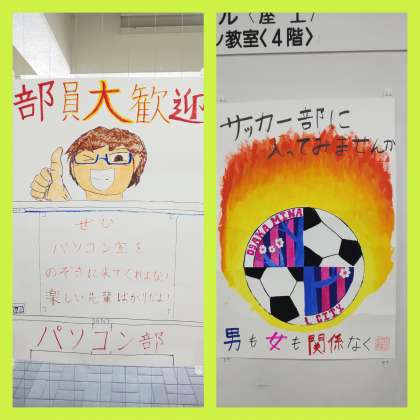 部員大歓迎
ぜひ
パソコン室を
のぞきに来てくれよな!
楽しい先輩ばかりだよ!
パソコン部
ル〈屋上〉
ン教室〈4階〉
サッカー部に
入ってみませんか
OSAKA MINA
L CITY
男も女も関係なく